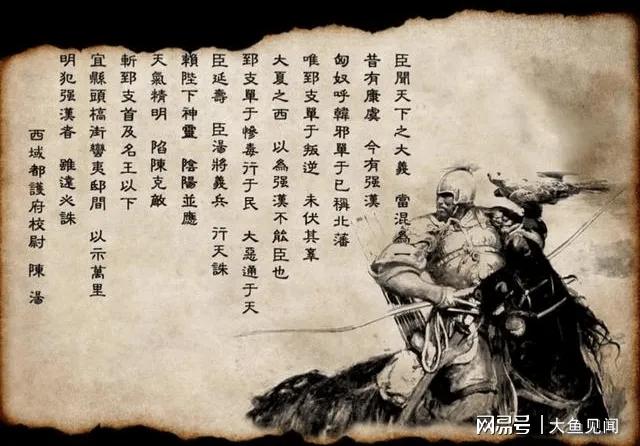 臣聞天下之大義 當混為
昔有康虞 今有强漢
匈奴呼韓邪單于已稱北藩
唯郅支單于叛逆 未伏其辜
大夏之西 以為强漢不能臣也
郅支單于慘毒行于民 大惡通于天
臣延壽 臣湯將義兵 行天誅
賴陛下神靈 陰陽並應
天氣精明 陷陳克敵
斬郅支首及名王以下
宜縣頭槁街蠻夷邸間 以示萬里
明犯强漢者 雖遠必誅
西域都護府校尉 陳湯
网易号 | 大鱼见闻